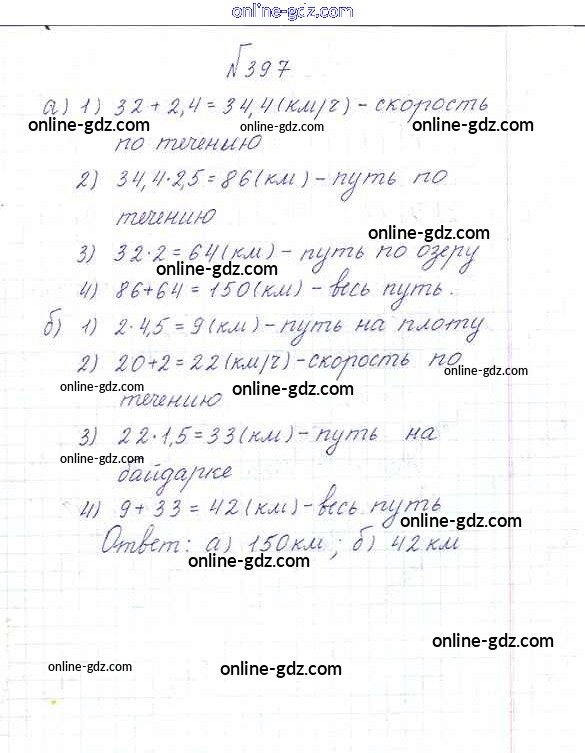 online-gdz.com
№397
а) 1) 32 + 2,4 = 34,4 (км/г) - скорость
online-gdz.com online-gdz.com online-gdz.com
по течению
2) 34,4·2,5 = 86 (км) - путь по
течению
online-gdz.com
3) 32·2 = 64 (км) - путь по озеру
online-gdz.com
4) 86+64 = 150 (км) - весь путь.
б) 1) 2·4,5 = 9 (км) - путь на плоту
2) 20+2 = 22 (км/г) - скорость по
online-gdz.com
online-gdz.com online-gdz.com
течению
3) 22·1,5 = 33 (км) - путь на
online-gdz.com
байдарке
4) 9 + 33 = 42 (км) - весь путь
online-gdz.com
Ответ: а) 150 км; б) 42 км
online-gdz.com
online-gdz.com
online-gdz.com online-gdz.com